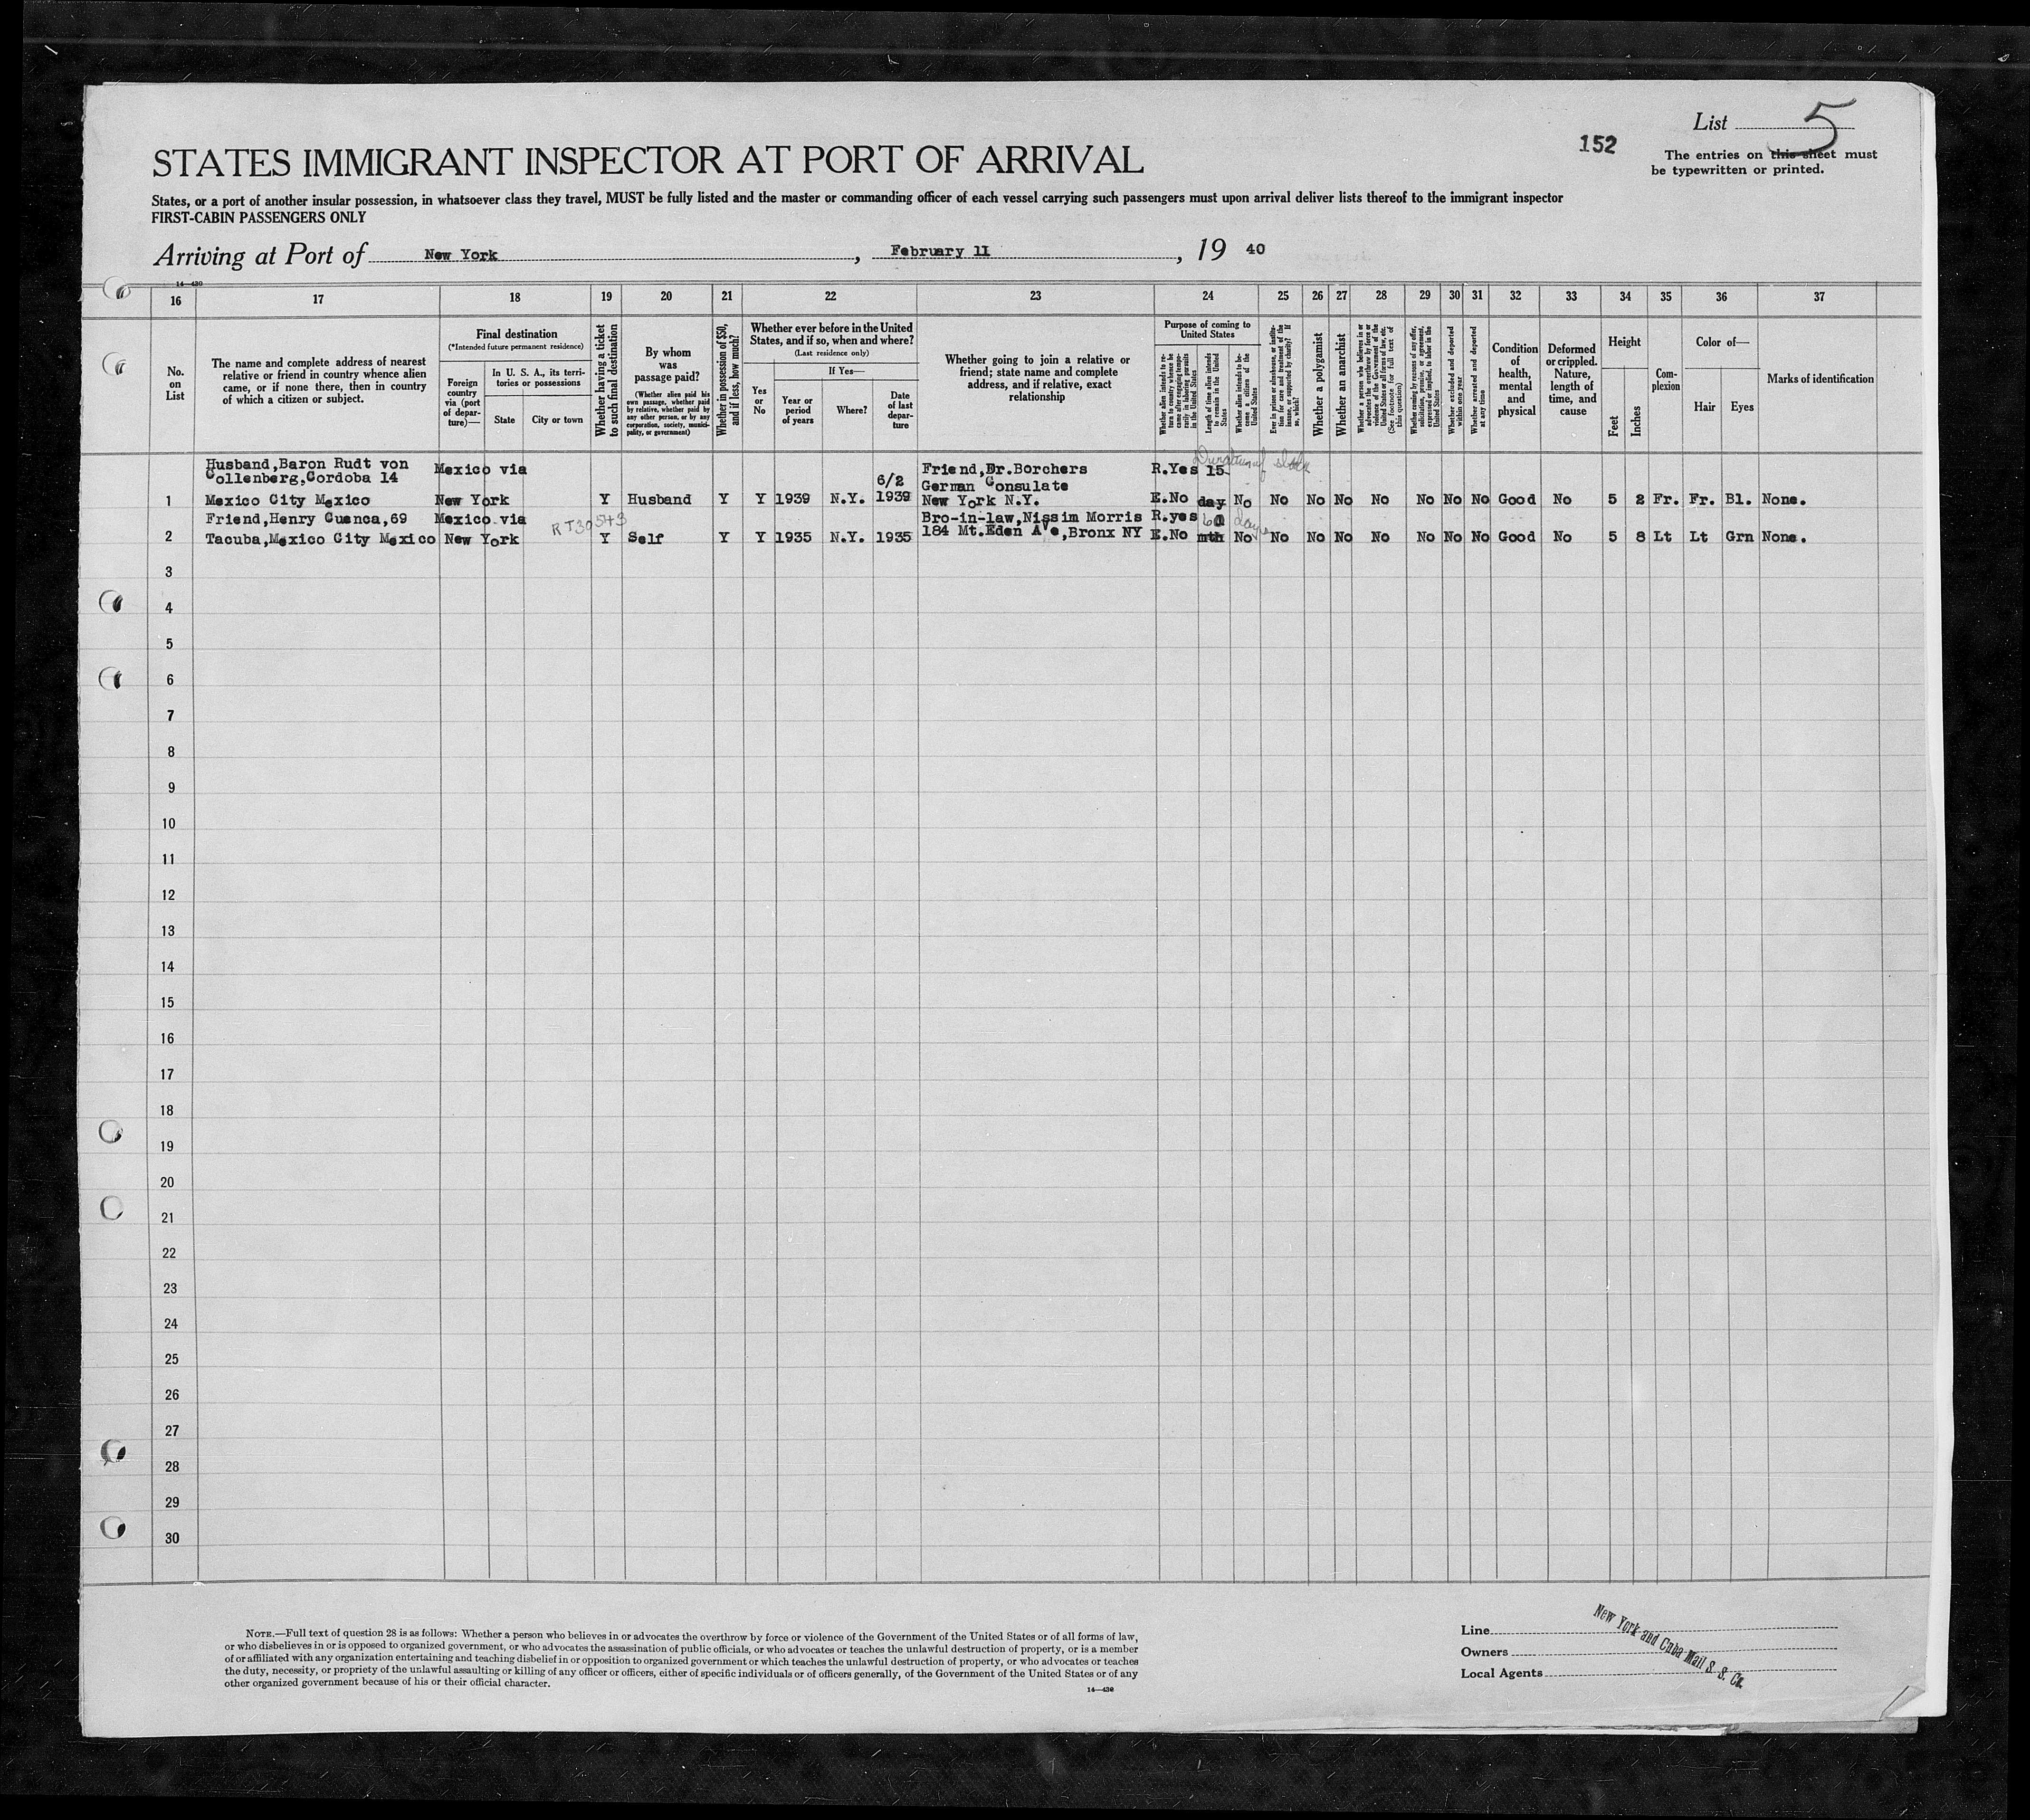 List 5
152
The entries on this sheet must
be typewritten or printed.
STATES IMMIGRANT INSPECTOR AT PORT OF ARRIVAL
States, or a port of another insular possession, in whatsoever class they travel, MUST be fully listed and the master or commanding officer of each vessel carrying such passengers must upon arrival deliver lists thereof to the immigrant inspector
FIRST-CABIN PASSENGERS ONLY
Arriving at Port of New York, February 11, 19 40
14—430
16 17 18 19 20 21 22 23 24 25 26 27 28 29 30 31 32 33 34 35 36 37
No.
on
List
The name and complete address of nearest
relative or friend in country whence alien
came, or if none there, then in country
of which a citizen or subject.
Final destination
(*Intended future permanent residence)
Foreign
country
via (port
of depar-
ture)—
In U. S. A., its terri-
tories or possessions
State
City or town
Whether having a ticket
to such final destination
By whom
was
passage paid?
(Whether alien paid his
own passage, whether paid
by relative, whether paid by
any other person, or by any
corporation, society, munici-
pality, or government)
Whether in possession of $50,
and if less, how much?
Whether ever before in the United
States, and if so, when and where?
(Last residence only)
Yes
or
No
If Yes—
Year or
period
of years
Where?
Date
of last
depar-
ture
Whether going to join a relative or
friend; state name and complete
address, and if relative, exact
relationship
Purpose of coming to
United States
Whether alien intends to re-
turn to country whence he
came after engaging tempo-
rarily in laboring pursuits
in the United States
Length of time alien intends
to remain in the United
States
Whether alien intends to be-
come a citizen of the
United States
Ever in prison or almshouse, or institu-
tion for care and treatment of the
insane, or supported by charity? If
so, which?
Whether a polygamist
Whether an anarchist
Whether a person who believes in or
advocates the overthrow by force or
violence of the Government of the
United States or all forms of law, etc.
(See footnote for full text of
this question)
Whether coming by reason of any offer,
solicitation, promise, or agreement,
expressed or implied, to labor in the
United States
Whether excluded and deported
within one year
Whether arrested and deported
at any time
Condition
of
health,
mental
and
physical
Deformed
or crippled.
Nature,
length of
time, and
cause
Height
Feet
Inches
Com-
plexion
Color of—
Hair
Eyes
Marks of identification
Husband,Baron Rudt von
Collenberg,Cordoba 14
1 Mexico City Mexico
Mexico via
New York
Y Husband Y Y 1939 N.Y.
6/2
1939
Friend,Dr.Borchers
German Consulate
New York N.Y.
R.Yes 15
Duration of
E.No day No No No No No No No No Good No 5 2 Fr. Fr. Bl. None.
Friend,Henry Cuenca,69
2 Tacuba,Mexico City Mexico
Mexico via
New York
RT30543
Y Self Y Y 1935 N.Y. 1935
Bro-in-law,Nissim Morris
184 Mt.Eden Ave,Bronx NY
R.yes 60 days
E.No mth No No No No No No No No Good No 5 8 Lt Lt Grn None.
3
4
5
6
7
8
9
10
11
12
13
14
15
16
17
18
19
20
21
22
23
24
25
26
27
28
29
30
NOTE.—Full text of question 28 is as follows: Whether a person who believes in or advocates the overthrow by force or violence of the Government of the United States or of all forms of law,
or who disbelieves in or is opposed to organized government, or who advocates the assassination of public officials, or who advocates or teaches the unlawful destruction of property, or is a member
of or affiliated with any organization entertaining and teaching disbelief in or opposition to organized government or which teaches the unlawful destruction of property, or who advocates or teaches
the duty, necessity, or propriety of the unlawful assaulting or killing of any officer or officers, either of specific individuals or of officers generally, of the Government of the United States or of any
other organized government because of his or their official character.
14—430
Line
Owners
Local Agents
New York and Cuba Mail S. S. Co.